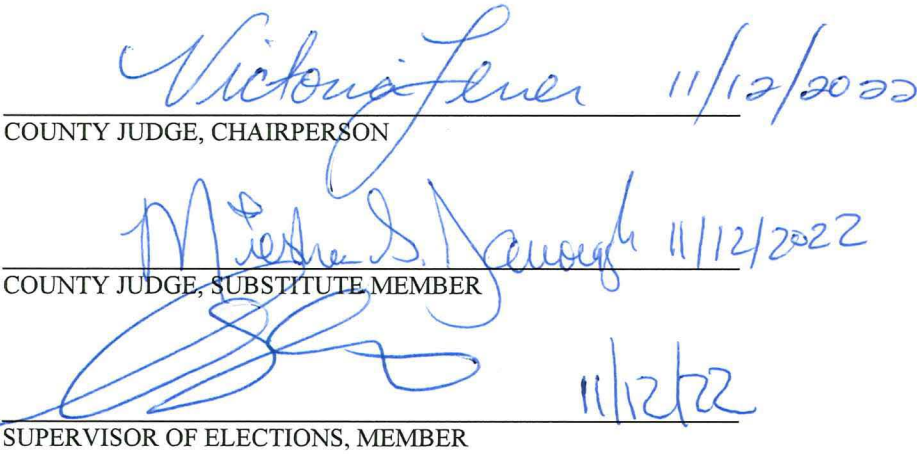 Victoria Ferrer 11/12/2022
COUNTY JUDGE, CHAIRPERSON
Miesha S. Darrough 11/12/2022
COUNTY JUDGE, SUBSTITUTE MEMBER
11/12/22
SUPERVISOR OF ELECTIONS, MEMBER